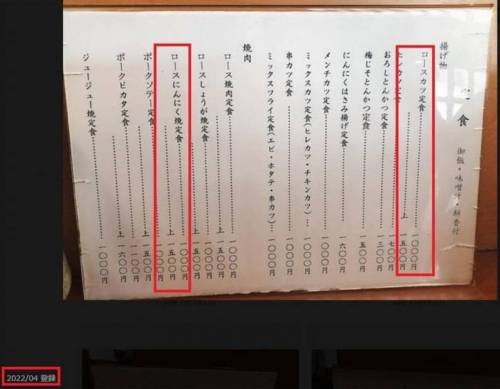 定食 御飯・味噌汁・新香付
揚げ物
ロースカツ定食 一〇〇〇円
上 一五〇〇円
ヒレカツ定食 一七〇〇円
おろしとんかつ定食 一三〇〇円
梅じそとんかつ定食 一五〇〇円
にんにくはさみ揚げ定食 一六〇〇円
メンチカツ定食 一〇〇〇円
ミックスカツ定食(ヒレカツ・チキンカツ) 一〇〇〇円
串カツ定食 一〇〇〇円
ミックスフライ定食(エビ・ホタテ・串カツ) 一〇〇〇円
焼肉
ロース焼肉定食 一〇〇〇円
上
ロースしょうが焼定食 一〇〇〇円
上 一五〇〇円
ロースにんにく焼定食 一〇〇〇円
上 一五〇〇円
ポークソテー定食
上 一五〇〇円
ポークピカタ定食 一一〇〇円
上 一六〇〇円
ジュージュー焼定食 一〇〇〇円
2022/04 登録